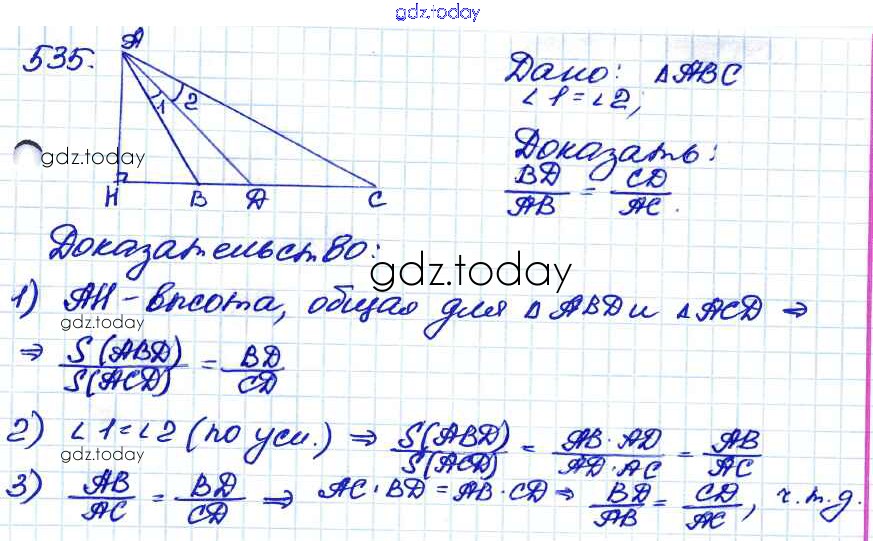 gdz.today
535.
A
1 2
H B D C
Дано: △ABC
∠1=∠2;
gdz.today
Доказать:
BD/AB = CD/AC.
Доказательство:
gdz.today
1) AH - высота, общая для △ABD и △ACD ⇒
gdz.today
⇒ S(ABD)/S(ACD) = BD/CD
2) ∠1=∠2 (по усл.) ⇒ S(ABD)/S(ACD) = AB·AD/AD·AC = AB/AC
gdz.today
3) AB/AC = BD/CD ⇒ AC·BD = AB·CD ⇒ BD/AB = CD/AC, ч.т.д.